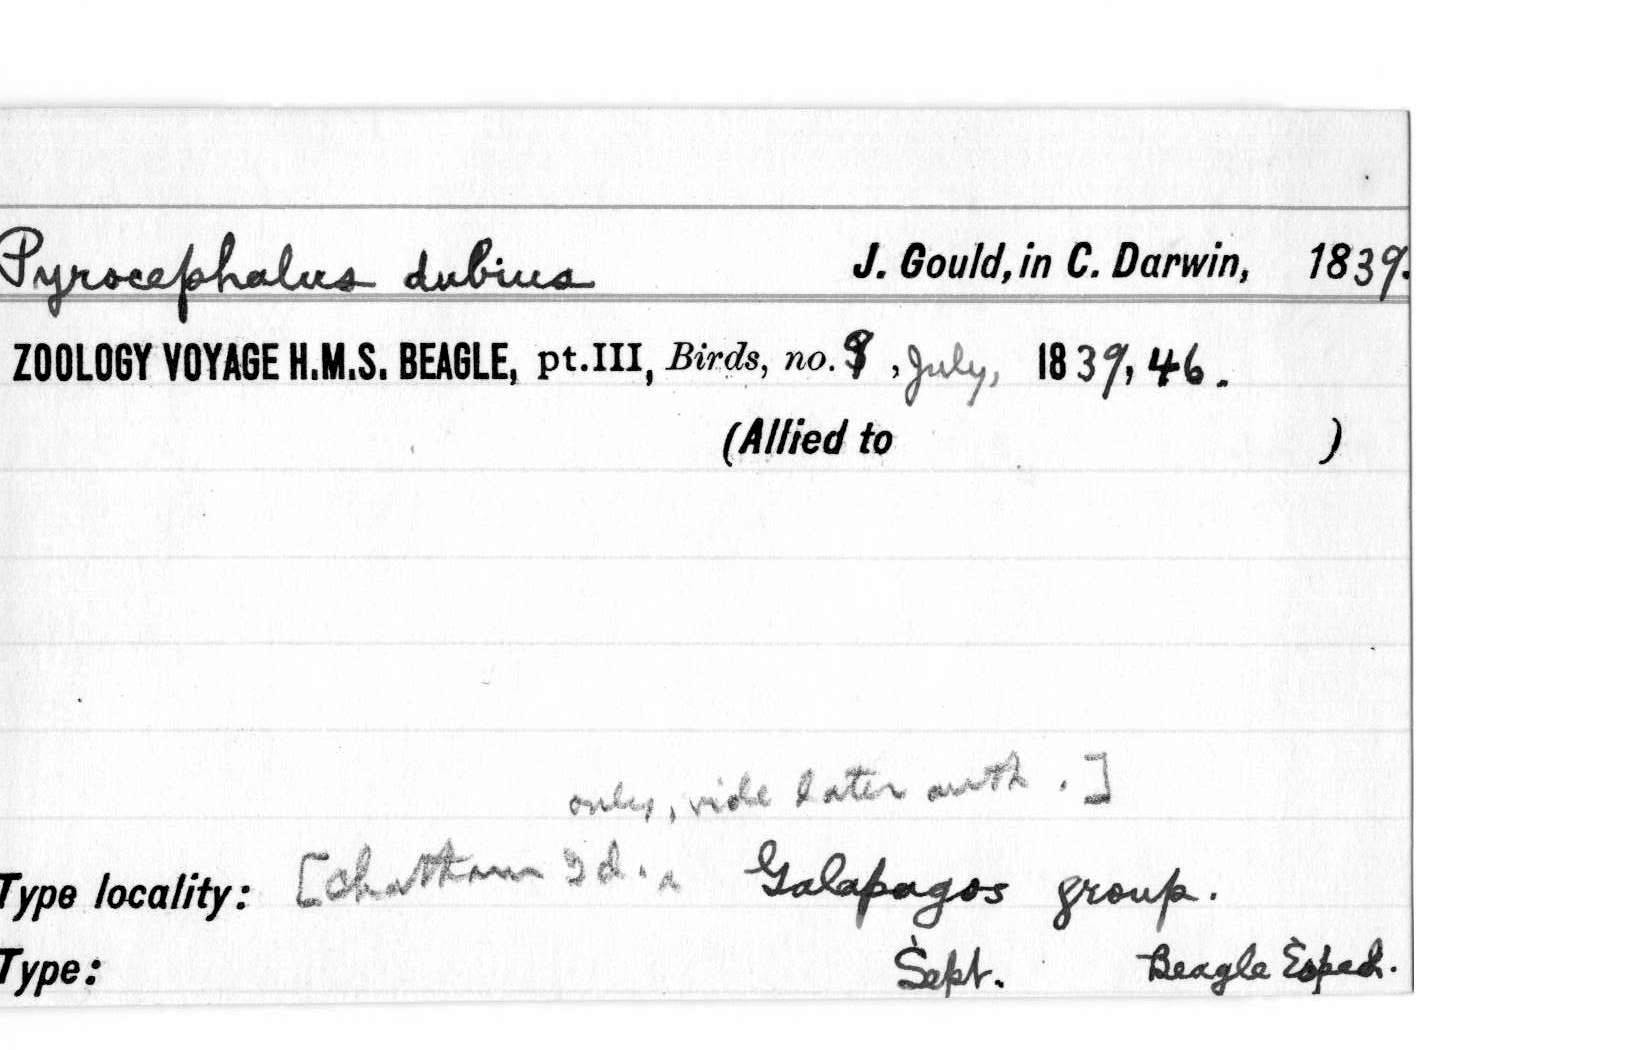 Pyrocephalus dubius J. Gould, in C. Darwin, 1839.
ZOOLOGY VOYAGE H.M.S. BEAGLE, pt.III, Birds, no. 9, July, 1839, 46.
(Allied to )
only, vide later auth.]
Type locality: [Chatham Id. ^ Galapagos group.
Type: Sept. Beagle Exped.